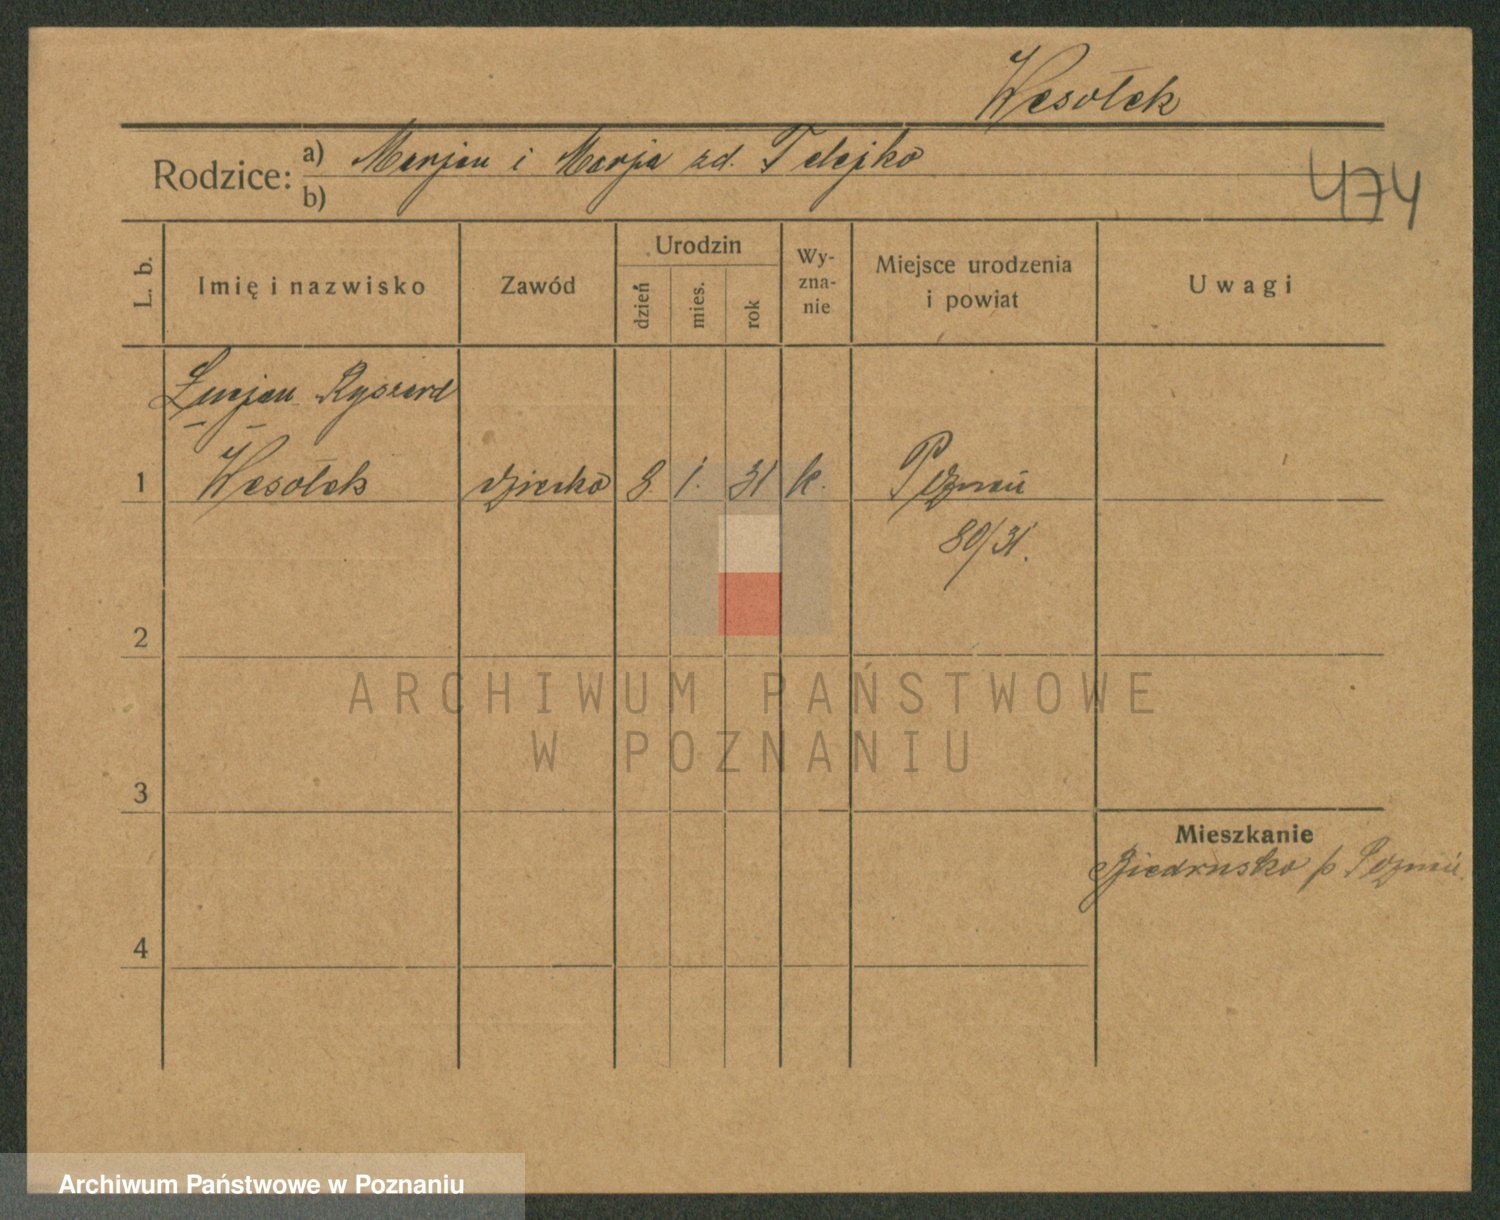 Wesołek
Rodzice: a) Marjan i Marja zd. Telejko
b)
474
L. b.
Imię i nazwisko
Zawód
Urodzin
dzień
mies.
rok
Wy-
zna-
nie
Miejsce urodzenia
i powiat
Uwagi
Lucjan Ryszard
1 Wesołek dziecko 8. 1. 31 k. Poznań
80/31.
2
ARCHIWUM PAŃSTWOWE
W POZNANIU
3
Mieszkanie
Biedrusko p Poznań
4
Archiwum Państwowe w Poznaniu